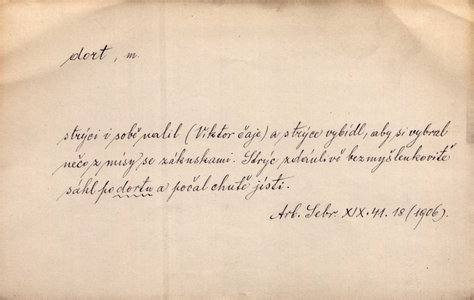 dort, m.
strýci i sobě nalil (Viktor čaje) a strýce vybídl, aby si vybral
něco z mísy se zákuskami. Strýc zdánlivě bezmyšlenkovitě
sáhl po dortu a počal chutě jísti.
Arb. Sebr. XIX. 41. 18 (1906).